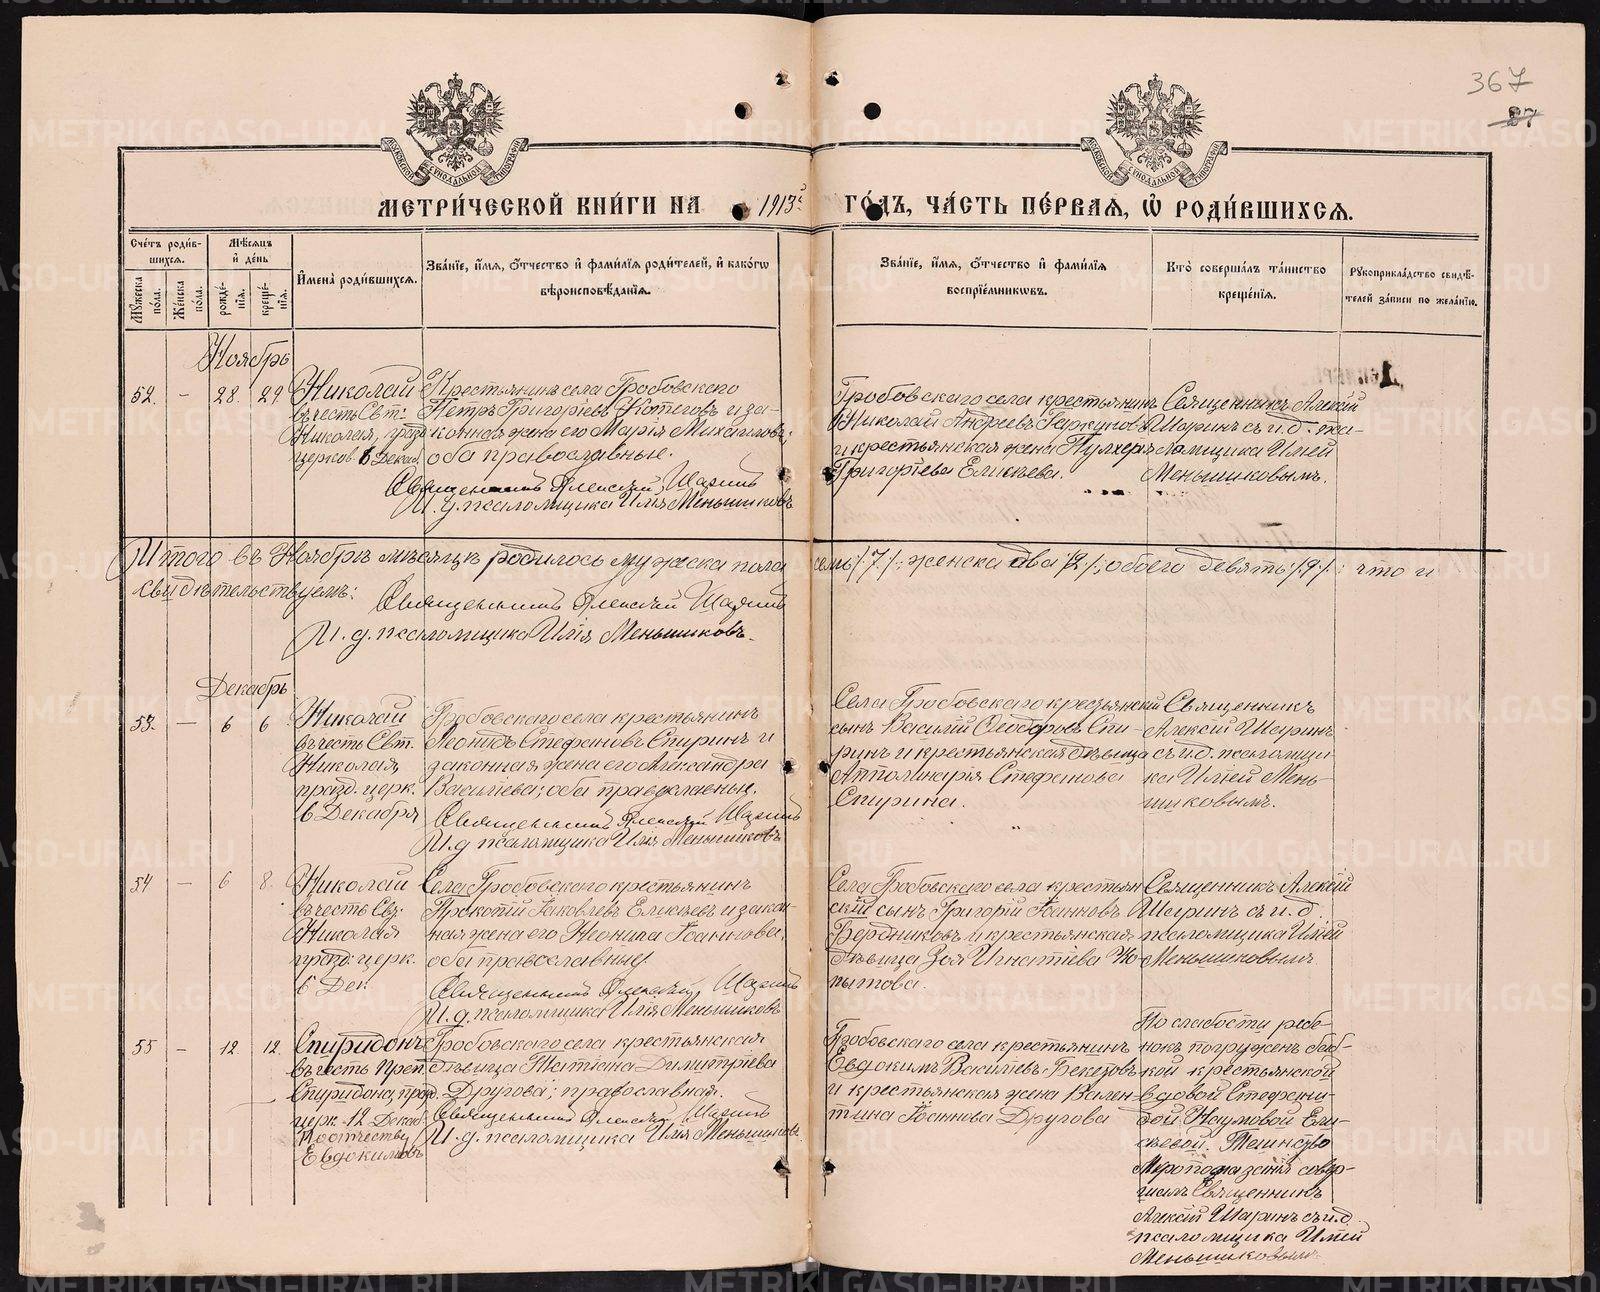 367
27
МЕТРИ́ЧЕСКОЙ КНИ́ГИ НА 1913й ГО́ДЪ, ЧА́СТЬ ПЕ́РВАЯ, Ѡ҆ РОДИ́ВШИХСЯ.
Сче́тъ роди́в-
шихся.
Мѣ́сяцъ
и҆ де́нь
Мꙋ́жеска по́ла.
Же́нска по́ла.
рожде́-
нїѧ.
креще́-
нїѧ.
И҆мена̀ роди́вшихсѧ.
Зва́нїе, и҆́мѧ, ѻ҆́тчество и҆ фами́лїѧ роди́телей, и҆ како́гѡ
вѣроисповѣ́данїѧ.
Зва́нїе, и҆́мѧ, ѻ҆́тчество и҆ фами́лїѧ
воспрїе́мникѡвъ.
Кто̀ соверша́лъ та́инство
креще́нїѧ.
Рꙋкоприкла́дство свидѣ́-
телей за́писи по жела́нїю.
Ноябрь
52. - 28. 29.
Николай
въ честь Свт.
Николая, празд.
церков. 6 Декаб.
Крестьянинъ села Гробовскаго
Петръ Григоріевъ Котеговъ и за-
конная жена его Марія Михаилова;
оба православные.
Священникъ Алексій Шаринъ
И. д. псаломщика Илія Меньшиковъ
Гробовскаго села крестьянинъ
Николай Андреевъ
и крестьянская жена Пулхерія
Григоріева Елисѣева.
Священникъ Алексій
Шаринъ съ и. д. пса-
ломщика Иліей
Меньшиковымъ.
Итого въ Ноябрѣ мѣсяцѣ родилось мужеска пола семь /7/; женска два /2/; обоего девять /9/: что и
свидѣтельствуемъ:
Священникъ Алексій Шаринъ
И. д. псаломщика Илія Меньшиковъ.
Декабрь
53. - 6 6
Николай
въ честь Свт.
Николая,
празд. церк.
6 Декабря
Гробовскаго села крестьянинъ
Леонидъ Стефановъ Спиринъ и
законная жена его Александра
Василіева; оба православные.
Священникъ Алексій Шаринъ
И. д. псаломщика Илія Меньшиковъ
Села Гробовскаго крестьянскій
сынъ Василій Ѳеодоровъ Спи-
ринъ и крестьянская дѣвица
Апполинарія Стефанова
Спирина.
Священникъ
Алексій Шаринъ
съ и. д. псаломщи-
ка Иліей Мень-
шиковымъ.
54 - 6 8.
Николай
въ честь Свт.
Николая
празд. церк.
6 Дек.
Села Гробовскаго крестьянинъ
Прокопій Іаковлевъ Елисѣевъ и закон-
ная жена его Неонила Іоаннова,
оба православные.
Священникъ Алексій Шаринъ
И. д. псаломщика Илія Меньшиковъ
Села Гробовскаго села крестьян-
скій сынъ Григорій Іоанновъ
Бердниковъ и крестьянская
дѣвица Зоя Игнатіева Ко-
пытова.
Священникъ Алексій
Шаринъ съ и. д.
псаломщика Иліей
Меньшиковымъ
55 - 12. 12.
Спиридонъ
въ честь Преп.
Спиридона, празд.
церк. 12 Декаб.
По отчеству
Евдокимовъ
Гробовскаго села крестьянская
дѣвица Татіана Димитріева
Другова; православная.
Священникъ Алексій Шаринъ
И. д. псаломщика Илія Меньшиковъ.
Гробовскаго села крестьянинъ
Евдокимъ Василіевъ Бекетовъ
и крестьянская жена Вален-
тина Іоаннова Другова
По слабости ребе-
нокъ погруженъ баб-
кой крестьянской
вдовой Стефани-
дой Наумовой Ели-
сѣевой. Таинство
Миропомазанія совер-
шилъ Священникъ
Алексій Шаринъ съ и. д.
псаломщика Иліей
Меньшиковымъ.